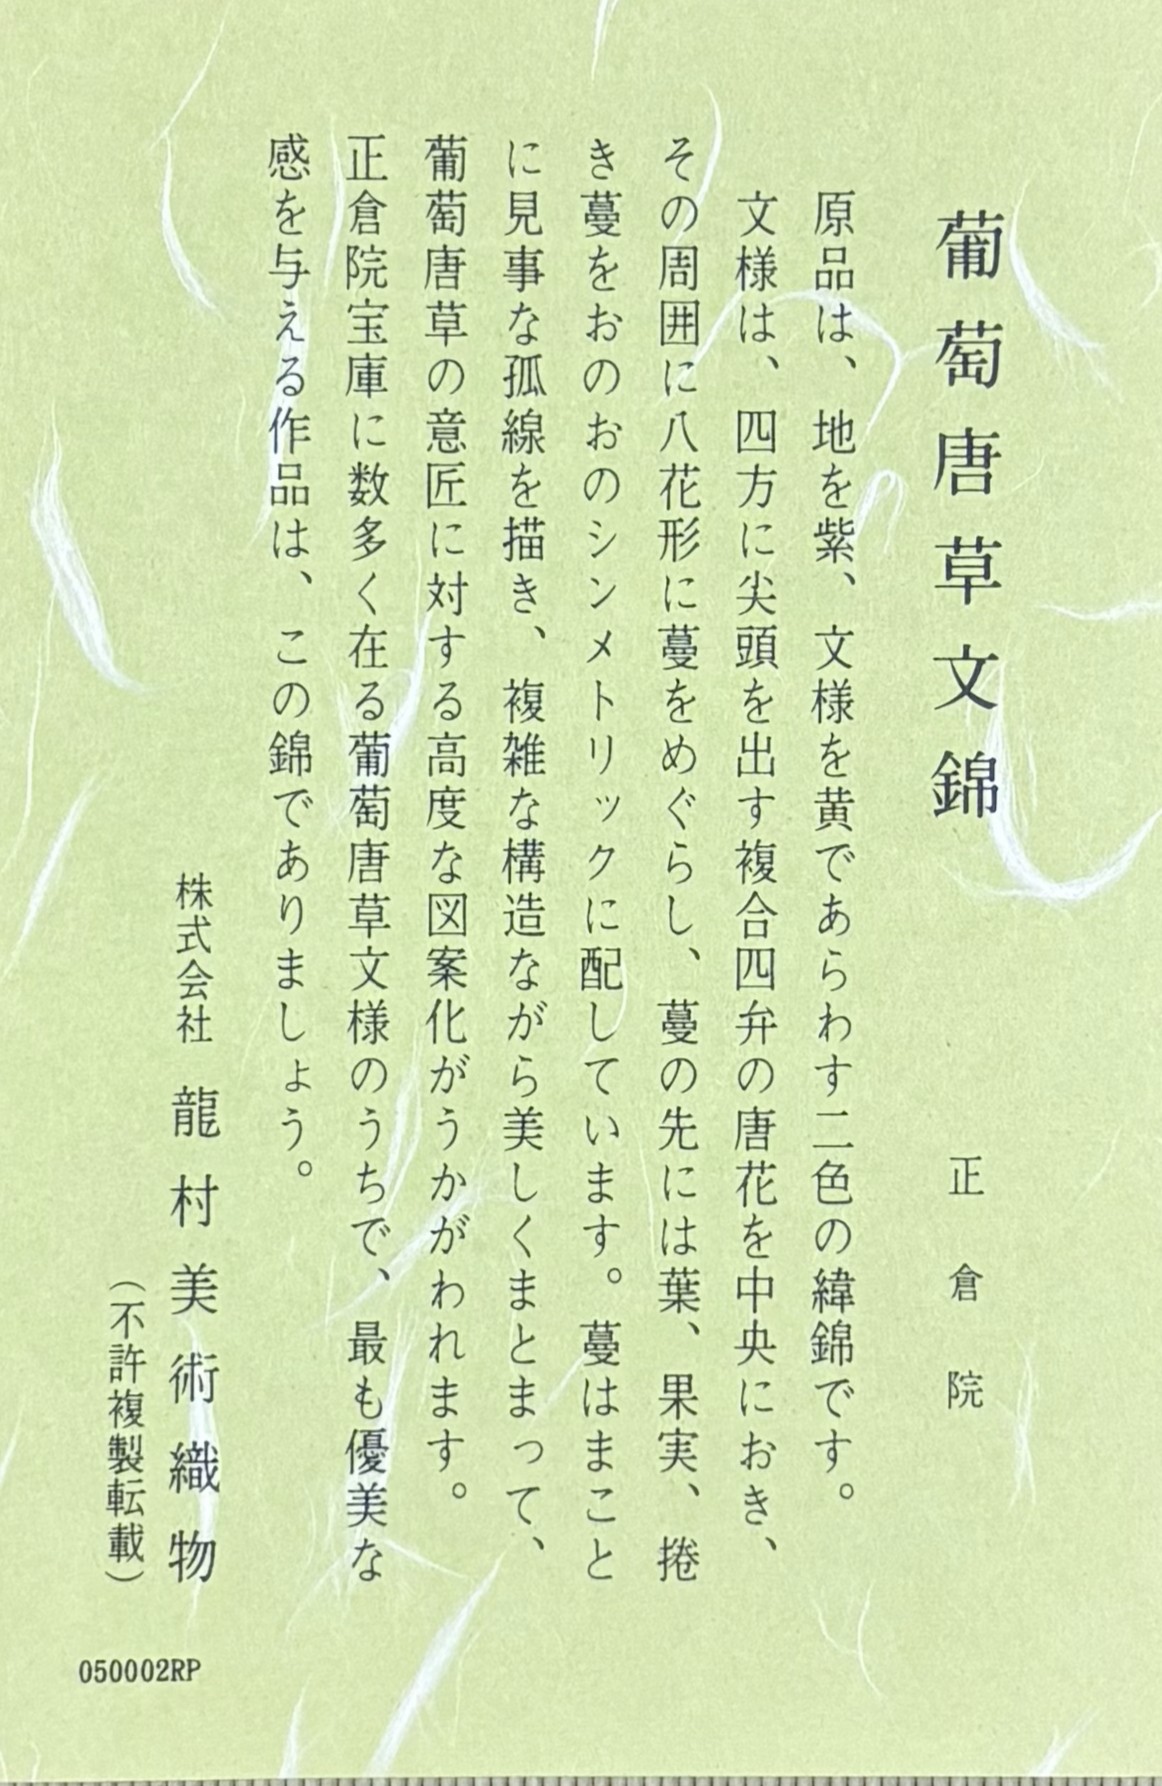 葡萄唐草文錦
正倉院
原品は、地を紫、文様を黄であらわす二色の緯錦です。
文様は、四方に尖頭を出す複合四弁の唐花を中央におき、
その周囲に八花形に蔓をめぐらし、蔓の先には葉、果実、捲
き蔓をおのおのシンメトリックに配しています。蔓はまこと
に見事な孤線を描き、複雑な構造ながら美しくまとまって、
葡萄唐草の意匠に対する高度な図案化がうかがわれます。
正倉院宝庫に数多く在る葡萄唐草文様のうちで、最も優美な
感を与える作品は、この錦でありましょう。
株式会社 龍村美術織物
（不許複製転載）
050002RP